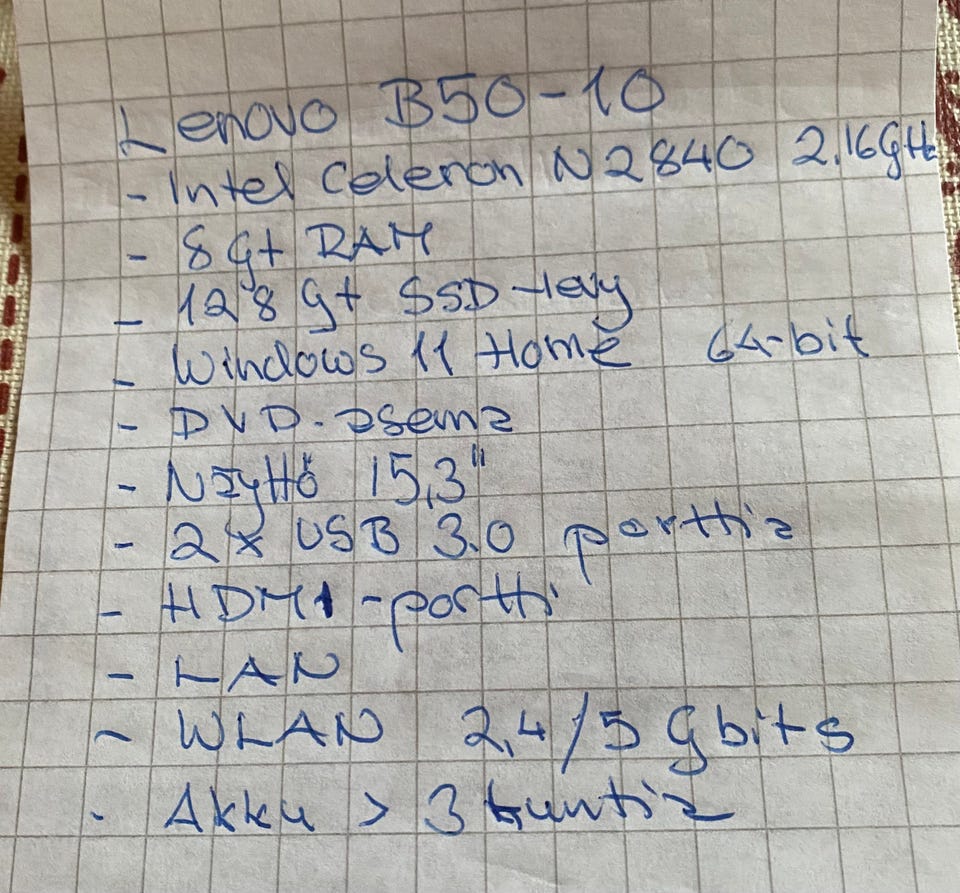 Lenovo B50-10
- Intel Celeron N2840 2.16GHz
- 8 Gt RAM
- 128 Gt SSD-levy
- Windows 11 Home 64-bit
- DVD-asema
- Näyttö 15,3"
- 2x USB 3.0 porttia
- HDMI-portti
- LAN
- WLAN 2,4/5 Gbits
- Akku > 3 tuntia